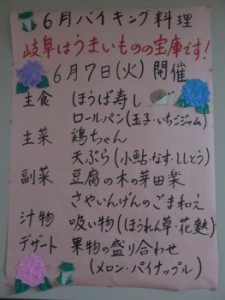 6月バイキング料理
岐阜はうまいものの宝庫です!
6月7日(火)開催
主食 ほうば寿し
ロールパン(玉子・いちごジャム)
主菜 鶏ちゃん
天ぷら(小鮎・なす・ししとう)
副菜 豆腐の木の芽田楽
さやいんげんのごま和え
汁物 吸い物(ほうれん草・花麩)
デザート 果物の盛り合わせ
(メロン・パイナップル)